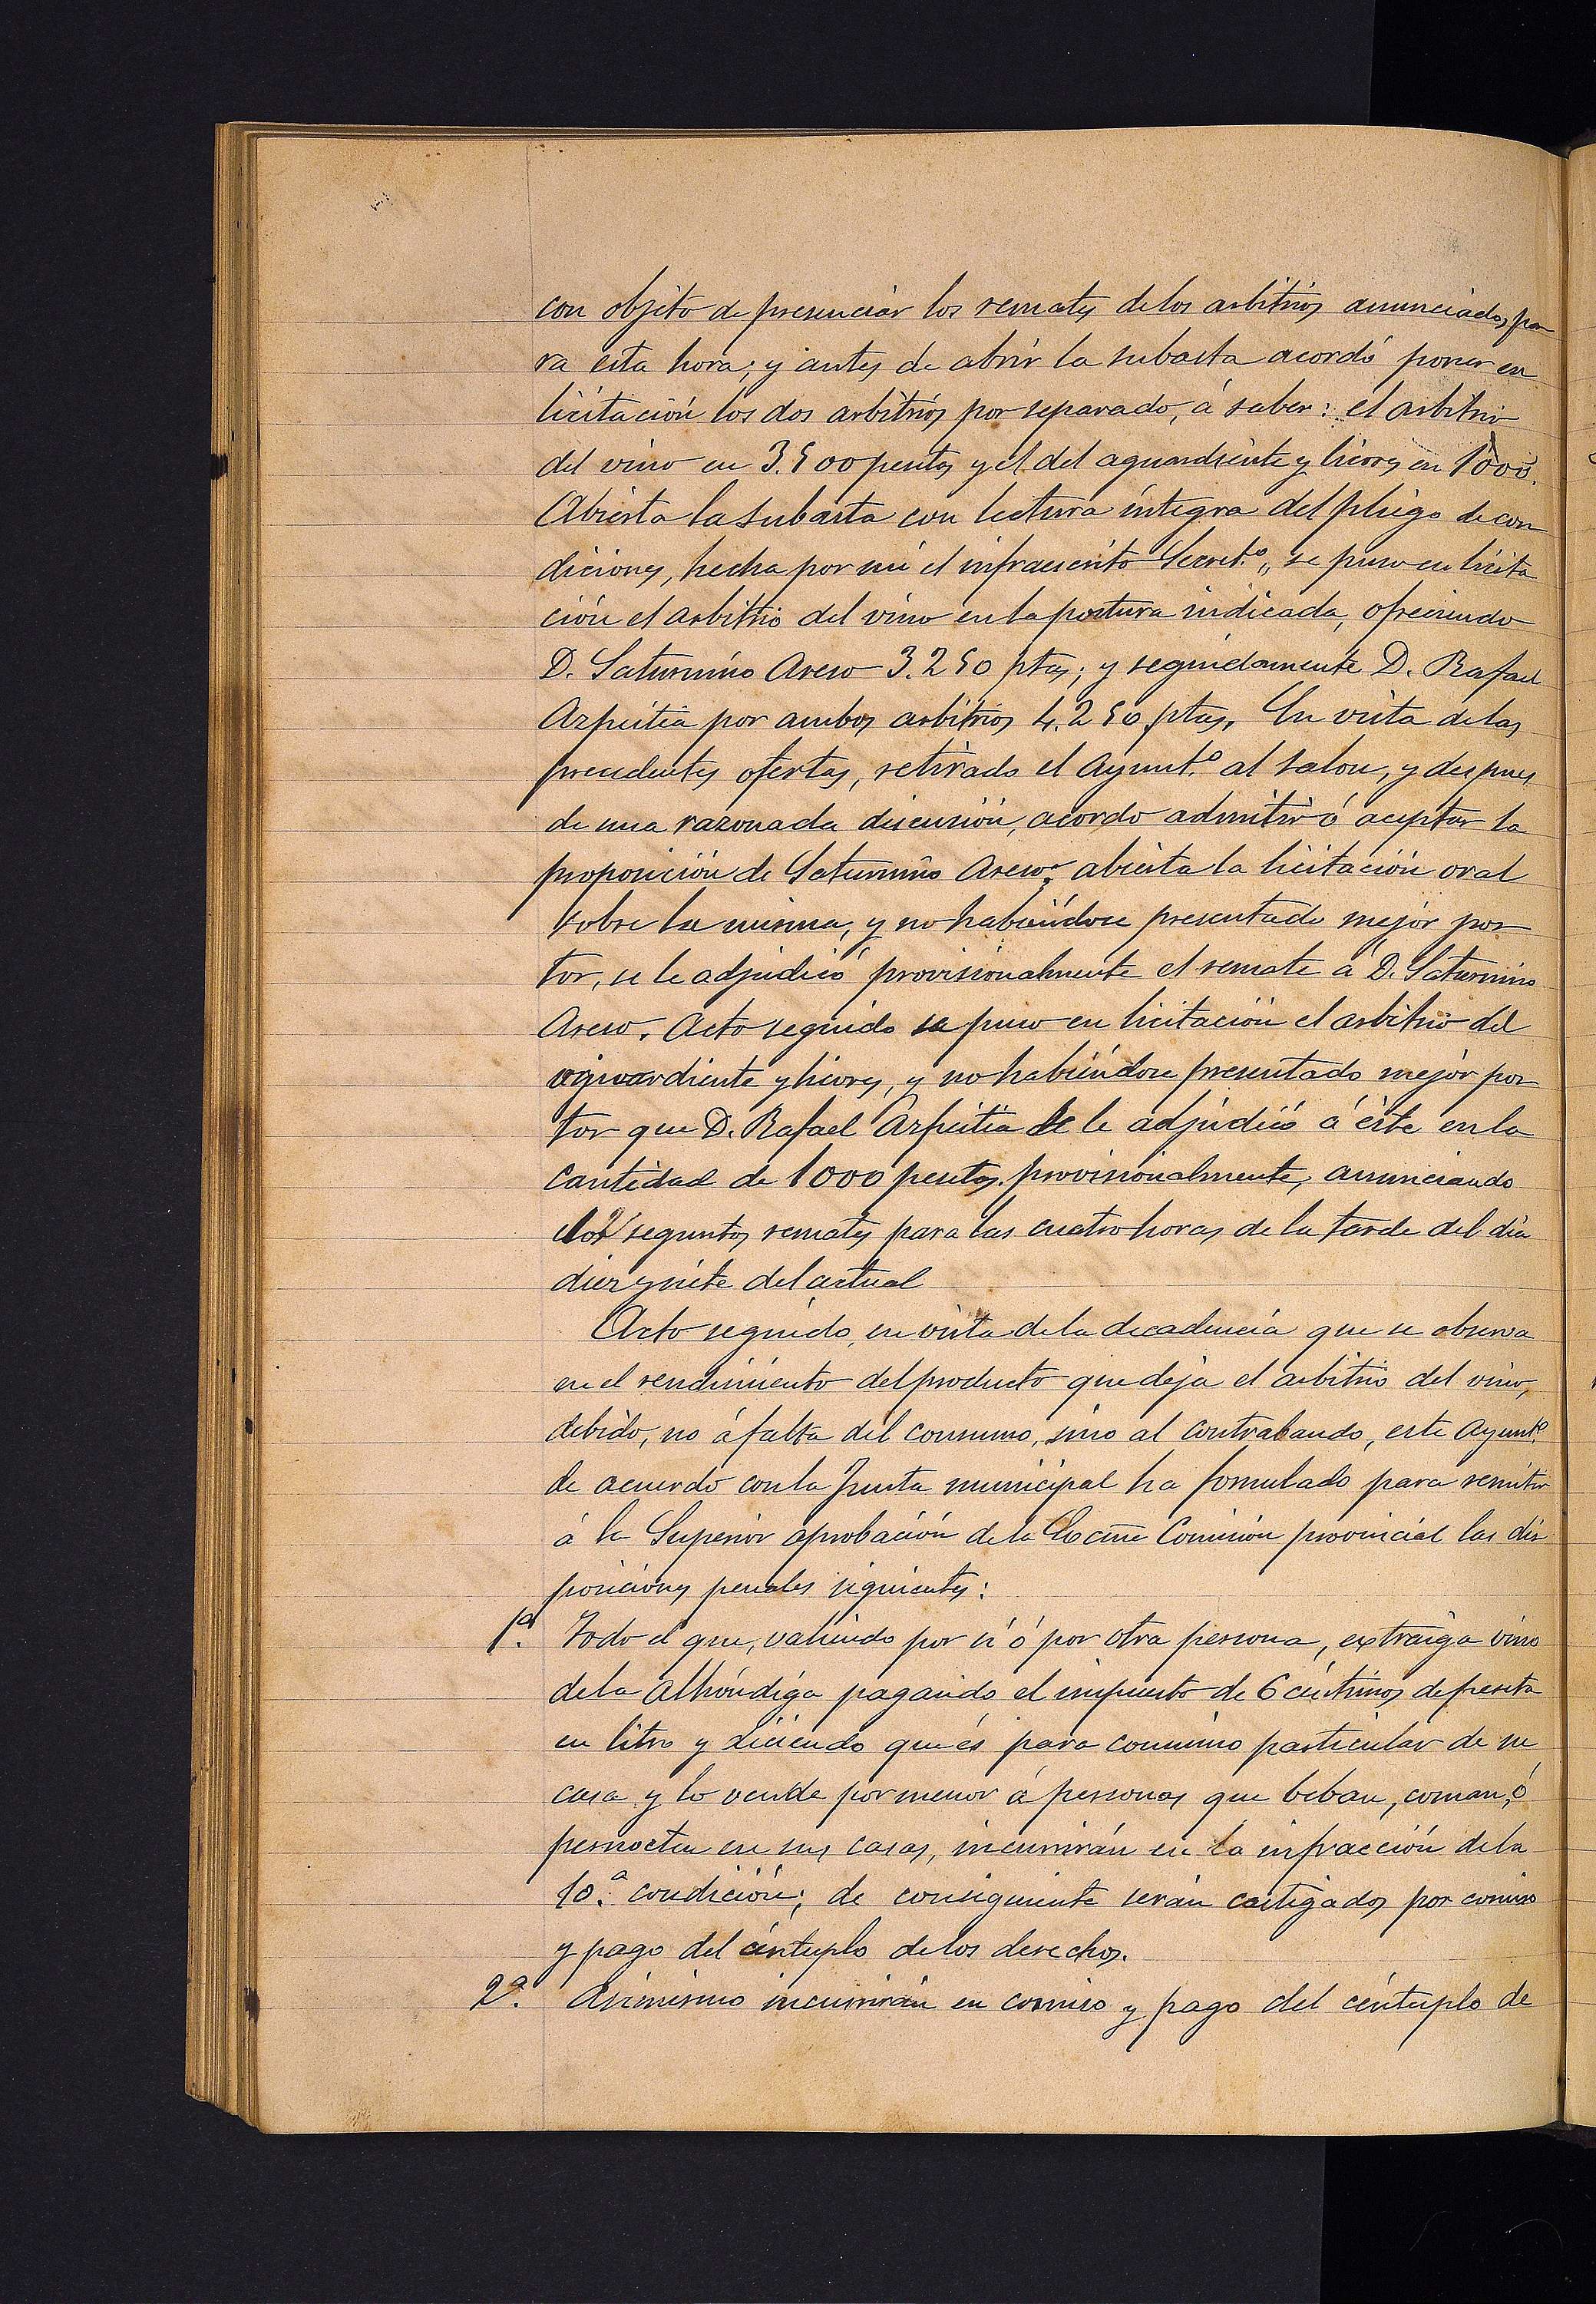 con objeto de presenciar los remates de los arbitrios anunciados pa
ra esta hora; y antes de abrir la subasta acordó poner en
licitación los dos arbitrios por separado, á saber: el arbitrio
del vino en 3.500 pesetas y el del aguardiente y licores en 1000.
Abierta la subasta con lectura íntegra del pliego de con
diciones, hecha por mi el infraescrito Secret.º, se puso en licita
ción el arbitrio del vino en la postura indicada, ofreciendo
D. Saturnino Areso 3.250 ptas; y seguidamente D. Rafael
Azpeitia por ambos arbitrios 4.250 ptas. En vista de las
precedentes ofertas, retirado el Ayunt.º al salon, y despues
de una razonada discusión, acordo admitir ó aceptar la
proposición de Saturnino Areso: abierta la licitación oral
sobre la misma, y no habiéndose presentado mejor pos
tor, se le adjudicó provisionalmente el remate á D. Saturnino
Areso. Acto seguido se puso en licitación el arbitrio del
aguardiente y licores, y no habiéndose presentado mejor pos
tor que D. Rafael Azpeitia se le adjudicó á éste en la
cantidad de 1000 pesetas provisionalmente, anunciando
los seguntos remates para las cuatro horas de la tarde del dia
diez y siete del actual
Acto seguido, en vista de la decadencia que se observa
en el rendimiento del producto que deja el arbitrio del vino,
debido, no á falta del consumo, sino al contrabando, este Ayunt.º
de acuerdo con la Junta municipal ha formulado para remitir
á la Superior aprobación de la Excma Comisión provincial las dis
posiciones penales siguientes:
1ª. Todo el que, valiendo por sí ó por otra persona, extraiga vino
de la Alhóndiga pagando el impuesto de 6 céntimos de peseta
en litro y diciendo que és para consumo particular de su
casa y lo vende por menor á personas que beban, coman, ó
pernocten en sus casas, incurrirán en la infracción de la
10.ª condición; de consiguiente serán castigados por comiso
y pago del céntuplo de los derechos.
2ª. Asimismo incurrirán en comiso y pago del céntuplo de